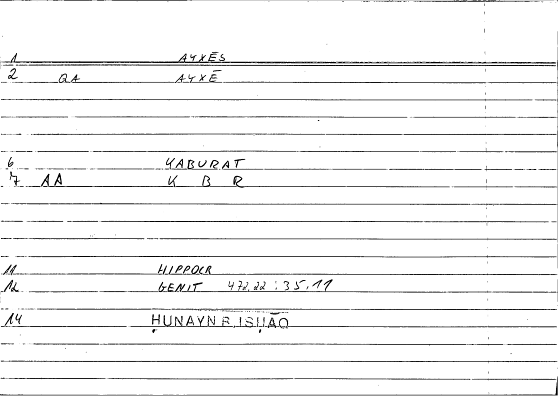 1 AYXĒS
2 QA AYXĒ
6 KABURAT
7 AA K B R
11 HIPPOCR
12 GENIT 472,22 : 35,11
14 ḤUNAYN B. ISḤĀQ